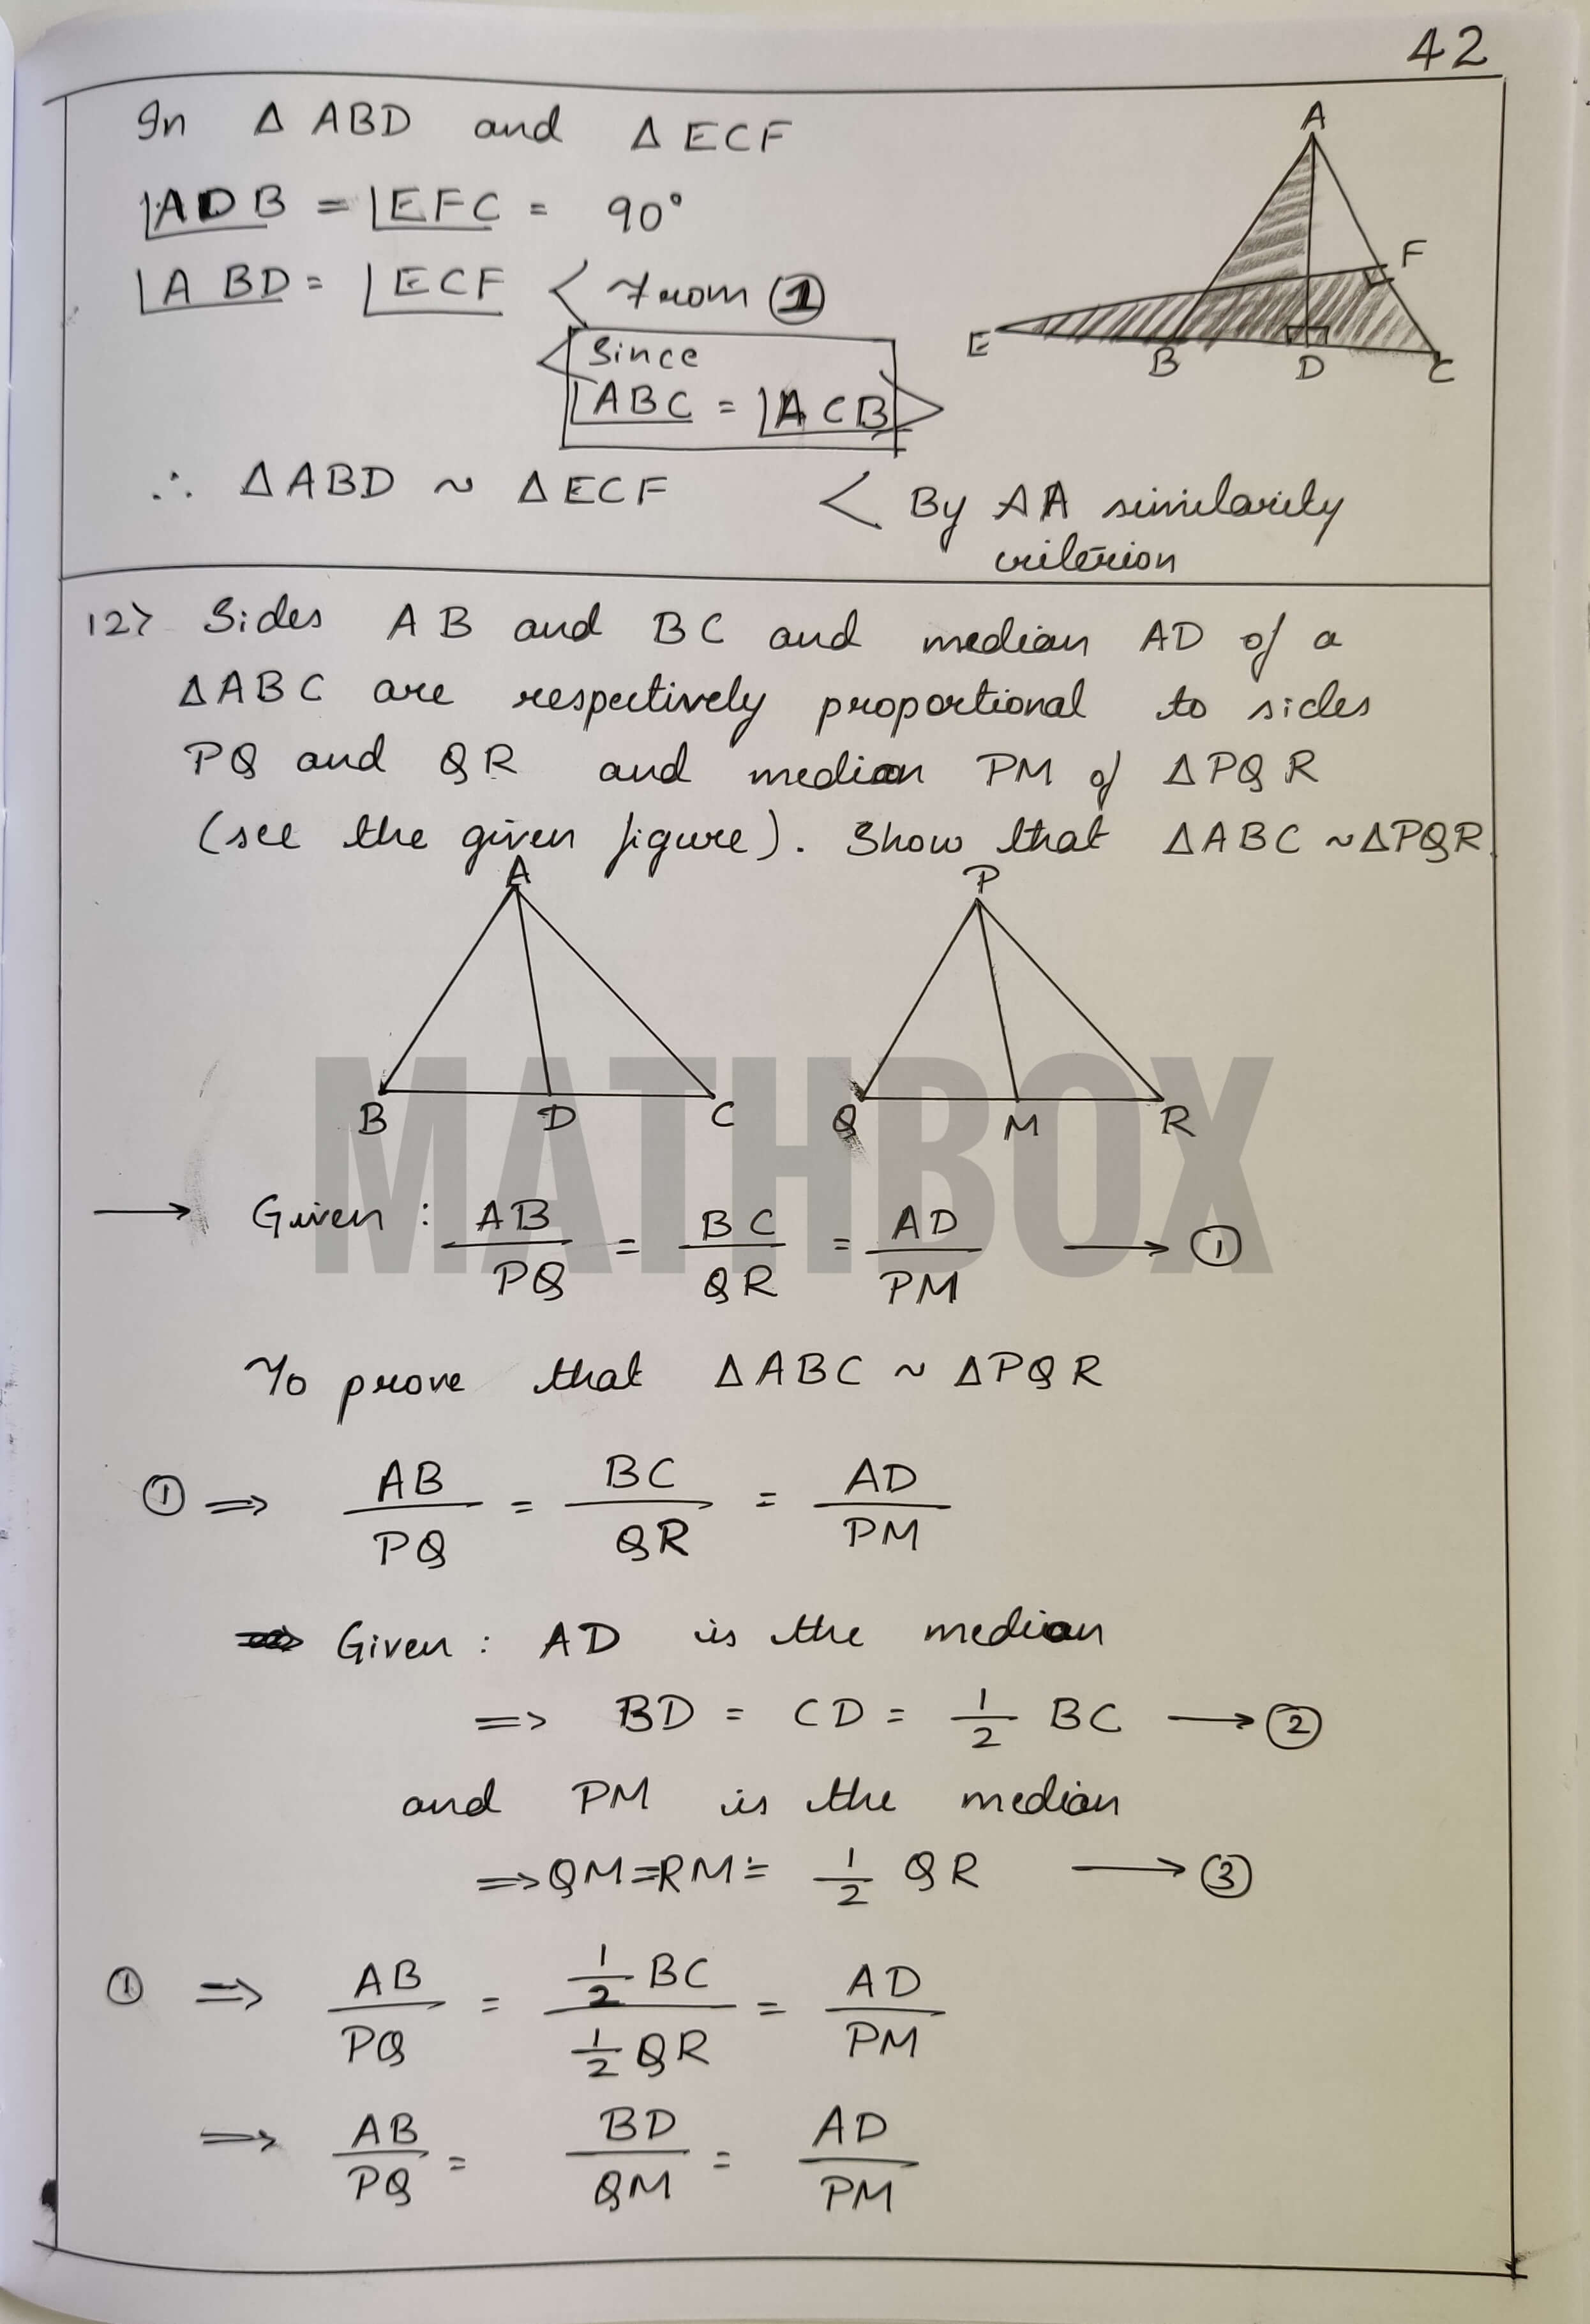 42
In Δ ABD and Δ ECF
∠ADB = ∠EFC = 90°
∠ABD = ∠ECF < From ①
< Since
∠ABC = ∠ACB >
∴ ΔABD ~ ΔECF < By AA similarity
criterion
A
F
E
B
D
C
12> Sides AB and BC and median AD of a
ΔABC are respectively proportional to sides
PQ and QR and median PM of ΔPQR
(see the given figure). Show that ΔABC ~ ΔPQR
A
P
B
D
C
Q
M
R
MATHBOX
→ Given : AB/PQ = BC/QR = AD/PM → ①
To prove that ΔABC ~ ΔPQR
① ⇒ AB/PQ = BC/QR = AD/PM
Given : AD is the median
⇒ BD = CD = 1/2 BC → ②
and PM is the median
⇒ QM = RM = 1/2 QR → ③
① ⇒ AB/PQ = 1/2 BC / 1/2 QR = AD/PM
⇒ AB/PQ = BD/QM = AD/PM